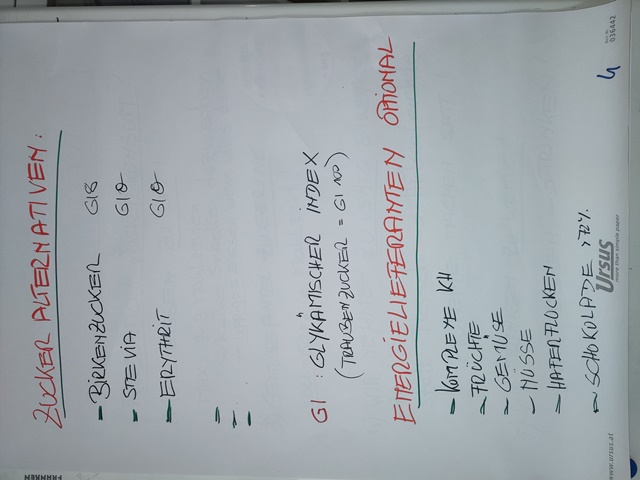 ZUCKER ALTERNATIVEN:
- BIRKENZUCKER GI8
- STEVIA GI0
- ERYTHRIT GI0
-
-
GI: GLYKÄMISCHER INDEX
(TRAUBENZUCKER = GI 100)
ENERGIELIEFERANTEN OPTIONAL
- KOMPLEXE KH
- FRÜCHTE
- GEMÜSE
- NÜSSE
- HAFERFLOCKEN
- SCHOKOLADE >72%
4
Ursus
more than simple paper
www.ursus.at
036442